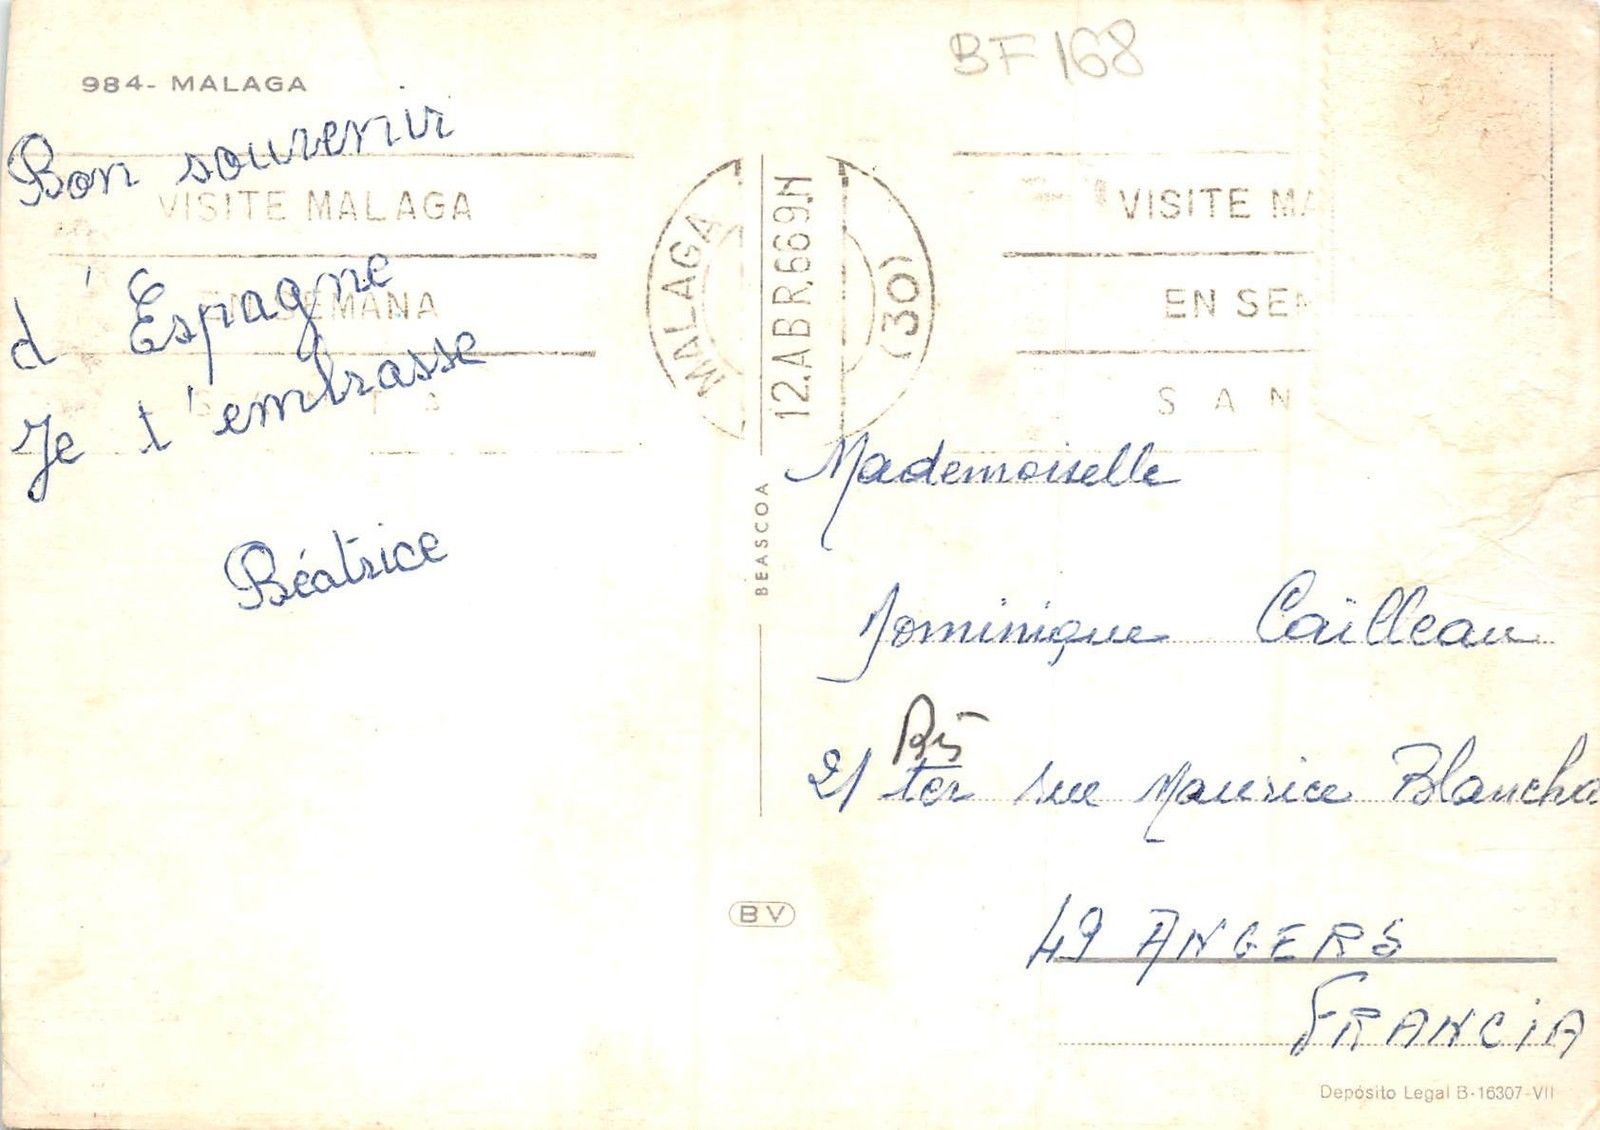 BF 168
984- MALAGA
Bon souvenir
d'Espagne
Je t'embrasse
Béatrice
VISITE MALAGA
EN SEMANA
MALAGA
12.ABR.669.M
(30)
VISITE MA
EN SEM
SAN
BEASCOA
BV
Mademoiselle
Dominique Cailleau
Bis
21 ter rue Maurice Blancha
49 ANGERS
FRANCIA
Depósito Legal B-16307-VII